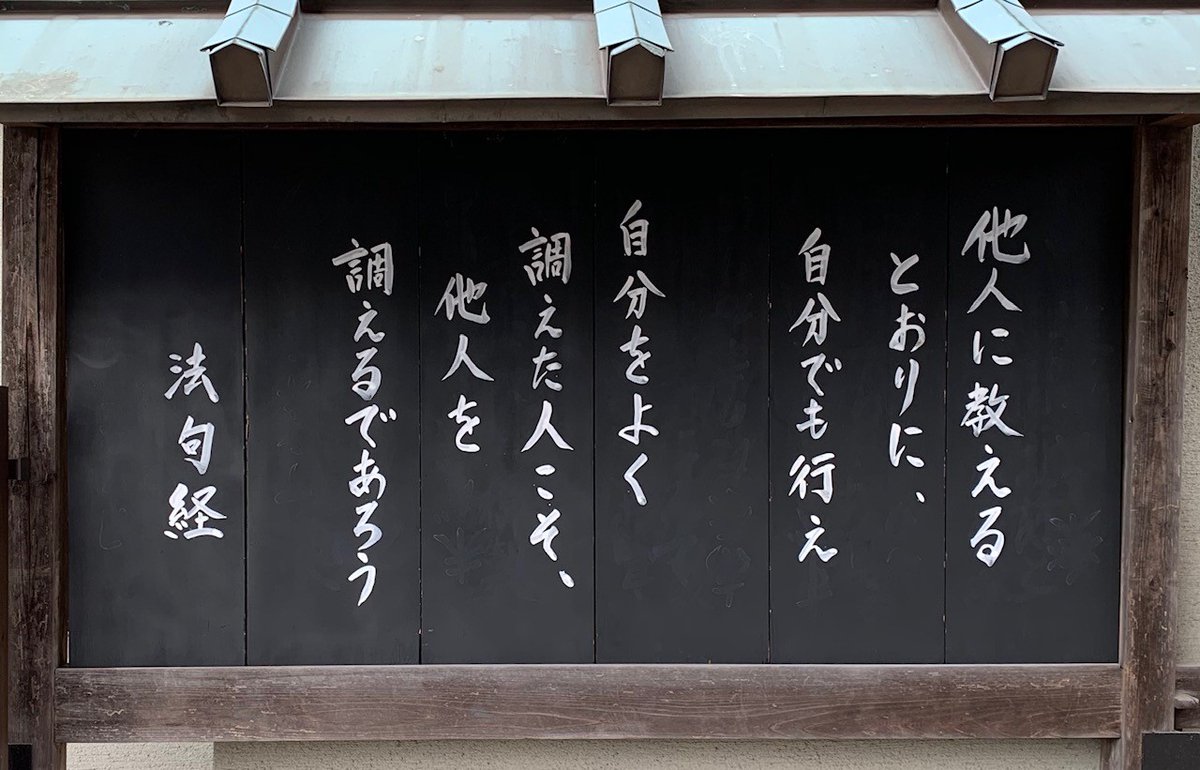 他人に教える
とおりに、
自分でも行え
自分をよく
調えた人こそ、
他人を
調えるであろう
法句経